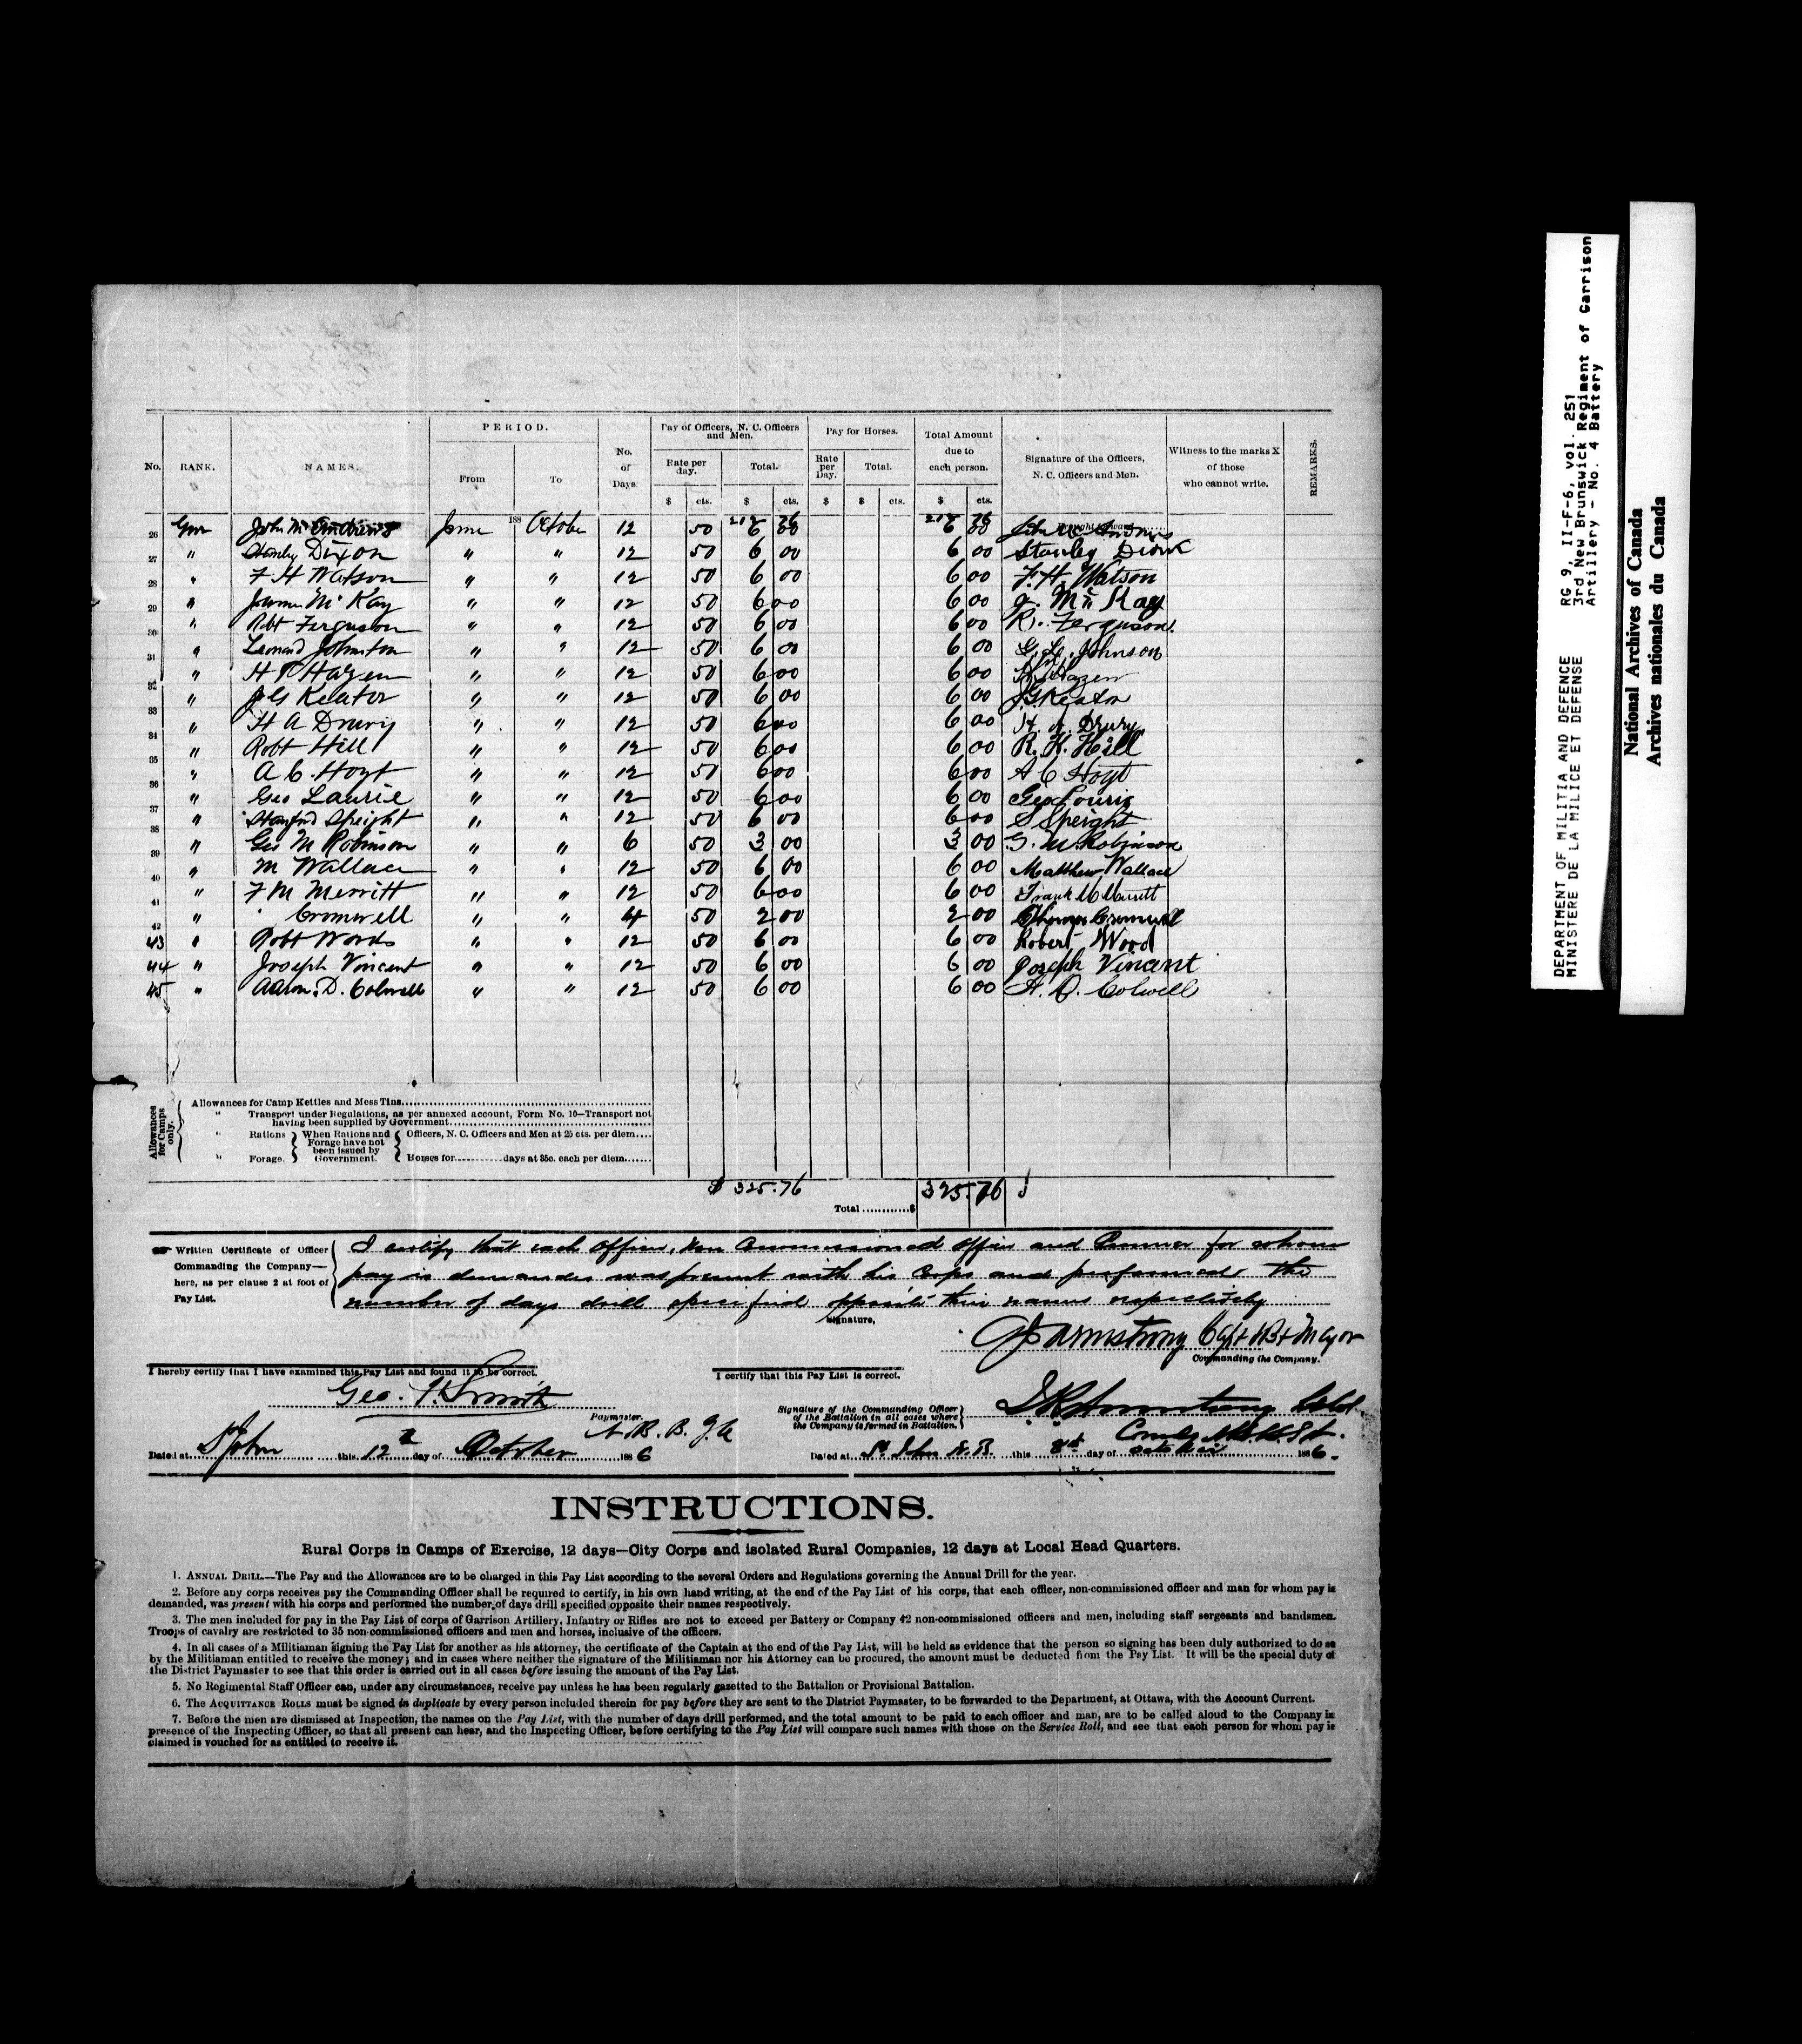 PERIOD.
Pay of Officers, N. C. Officers and Men.
Pay for Horses.
Total Amount due to each person.
No.
RANK.
NAMES.
From
To
No. of Days
Rate per day.
Total.
Rate per Day.
Total.
Signature of the Officers, N. C. Officers and Men.
Witness to the marks X of those who cannot write.
REMARKS.
$ cts. $ cts. $ $ cts. $ cts.
188
Brought forward
26 Gnr John McAndrews June October 12 50 6 00 6 00 John McAndrews
27 " Stanley Dixon " " 12 50 6 00 6 00 Stanley Dixon
28 " F H Watson " " 12 50 6 00 6 00 F. H. Watson
29 " James McKay " " 12 50 6 00 6 00 J. McKay
30 " Robt Ferguson " " 12 50 6 00 6 00 R. Ferguson.
31 " Leonard Johnston " " 12 50 6 00 6 00 G. L. Johnson
32 " H P Hazen " " 12 50 6 00 6 00 Hazen
33 " J G Keator " " 12 50 6 00 6 00 J G Keator
34 " H A Drury " " 12 50 6 00 6 00 H. A. Drury
35 " Robt Hill " " 12 50 6 00 6 00 R. H. Hill
36 " A C Hoyt " " 12 50 6 00 6 00 A C Hoyt
37 " Geo Laurie " " 12 50 6 00 6 00 Geo Lourie
38 " Stanford Speight " " 12 50 6 00 6 00 S Speight
39 " Geo M Robinson " " 6 50 3 00 3 00 G. M. Robinson
40 " M Wallace " " 12 50 6 00 6 00 Matthew Wallace
41 " F M Merritt " " 12 50 6 00 6 00 Frank M Merritt
42 " Cromwell " " 4 50 2 00 2 00 Thomas Cromwell
43 " Robt Woods " " 12 50 6 00 6 00 Robert Wood
44 " Joseph Vincent " " 12 50 6 00 6 00 Joseph Vincent
45 " Aaron. D. Colwell " " 12 50 6 00 6 00 A. D. Colwell
Allowances for Camps only.
Allowances for Camp Kettles and Mess Tins
" Transport under Regulations, as per annexed account, Form No. 10—Transport not having been supplied by Government
" Rations } When Rations and Forage have not been issued by Government. { Officers, N. C. Officers and Men at 25 cts. per diem....
" Forage. Horses for .......... days at 35c. each per diem.......
$ 325.76
Total ............$ 325.76
Written Certificate of Officer Commanding the Company—here, as per clause 2 at foot of Pay List.
I certify that each officer, Non Commissioned officer and Gunner for whom
pay is demanded was present with his Corps and performed the
number of days drill specified opposite their names respectively
Signature,
Armstrong Capt & Bt Major
Commanding the Company.
I hereby certify that I have examined this Pay List and found it to be correct.
Geo. F. Smith
Paymaster.
N. B. B. G. A
Dated at St John this 12 day of October 1886
I certify that this Pay List is correct.
Signature of the Commanding Officer of the Battalion in all cases where the Company is formed in Battalion.
Armstrong
Dated at St. John N.B. this 8th day of October 1886.
INSTRUCTIONS.
Rural Corps in Camps of Exercise, 12 days—City Corps and isolated Rural Companies, 12 days at Local Head Quarters.
1. ANNUAL DRILL.—The Pay and the Allowances are to be charged in this Pay List according to the several Orders and Regulations governing the Annual Drill for the year.
2. Before any corps receives pay the Commanding Officer shall be required to certify, in his own hand writing, at the end of the Pay List of his corps, that each officer, non-commissioned officer and man for whom pay is
demanded, was present with his corps and performed the number of days drill specified opposite their names respectively.
3. The men included for pay in the Pay List of corps of Garrison Artillery, Infantry or Rifles are not to exceed per Battery or Company 42 non-commissioned officers and men, including staff sergeants and bandsmen.
Troops of cavalry are restricted to 35 non-commissioned officers and men and horses, inclusive of the officers.
4. In all cases of a Militiaman signing the Pay List for another as his attorney, the certificate of the Captain at the end of the Pay List, will be held as evidence that the person so signing has been duly authorized to do so
by the Militiaman entitled to receive the money; and in cases where neither the signature of the Militiaman nor his Attorney can be procured, the amount must be deducted from the Pay List. It will be the special duty of
the District Paymaster to see that this order is carried out in all cases before issuing the amount of the Pay List.
5. No Regimental Staff Officer can, under any circumstances, receive pay unless he has been regularly gazetted to the Battalion or Provisional Battalion.
6. The ACQUITTANCE ROLLS must be signed in duplicate by every person included therein for pay before they are sent to the District Paymaster, to be forwarded to the Department, at Ottawa, with the Account Current.
7. Before the men are dismissed at Inspection, the names on the Pay List, with the number of days drill performed, and the total amount to be paid to each officer and man, are to be called aloud to the Company in
presence of the Inspecting Officer, so that all present can hear, and the Inspecting Officer, before certifying to the Pay List will compare such names with those on the Service Roll, and see that each person for whom pay is
claimed is vouched for as entitled to receive it.
DEPARTMENT OF MILITIA AND DEFENCE RG 9, II-F-6, vol. 251
MINISTERE DE LA MILICE ET DEFENSE 3rd New Brunswick Regiment of Garrison
Artillery - No. 4 Battery
National Archives of Canada
Archives nationales du Canada